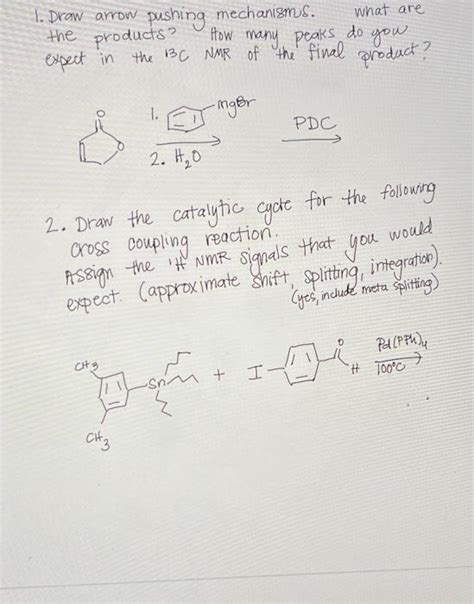 1. Draw arrow pushing mechanisms. what are
the products? How many peaks do you
expect in the 13C NMR of the final product?
O
O
1. -mgBr
2. H2O
PDC
2. Draw the catalytic cycle for the following
cross coupling reaction.
Assign the 1H NMR signals that you would
expect. (approximate shift, splitting, integration).
(yes, include meta splitting)
CH3
Sn
CH3
+ I
O
H
Pd(PPh)4
100°C